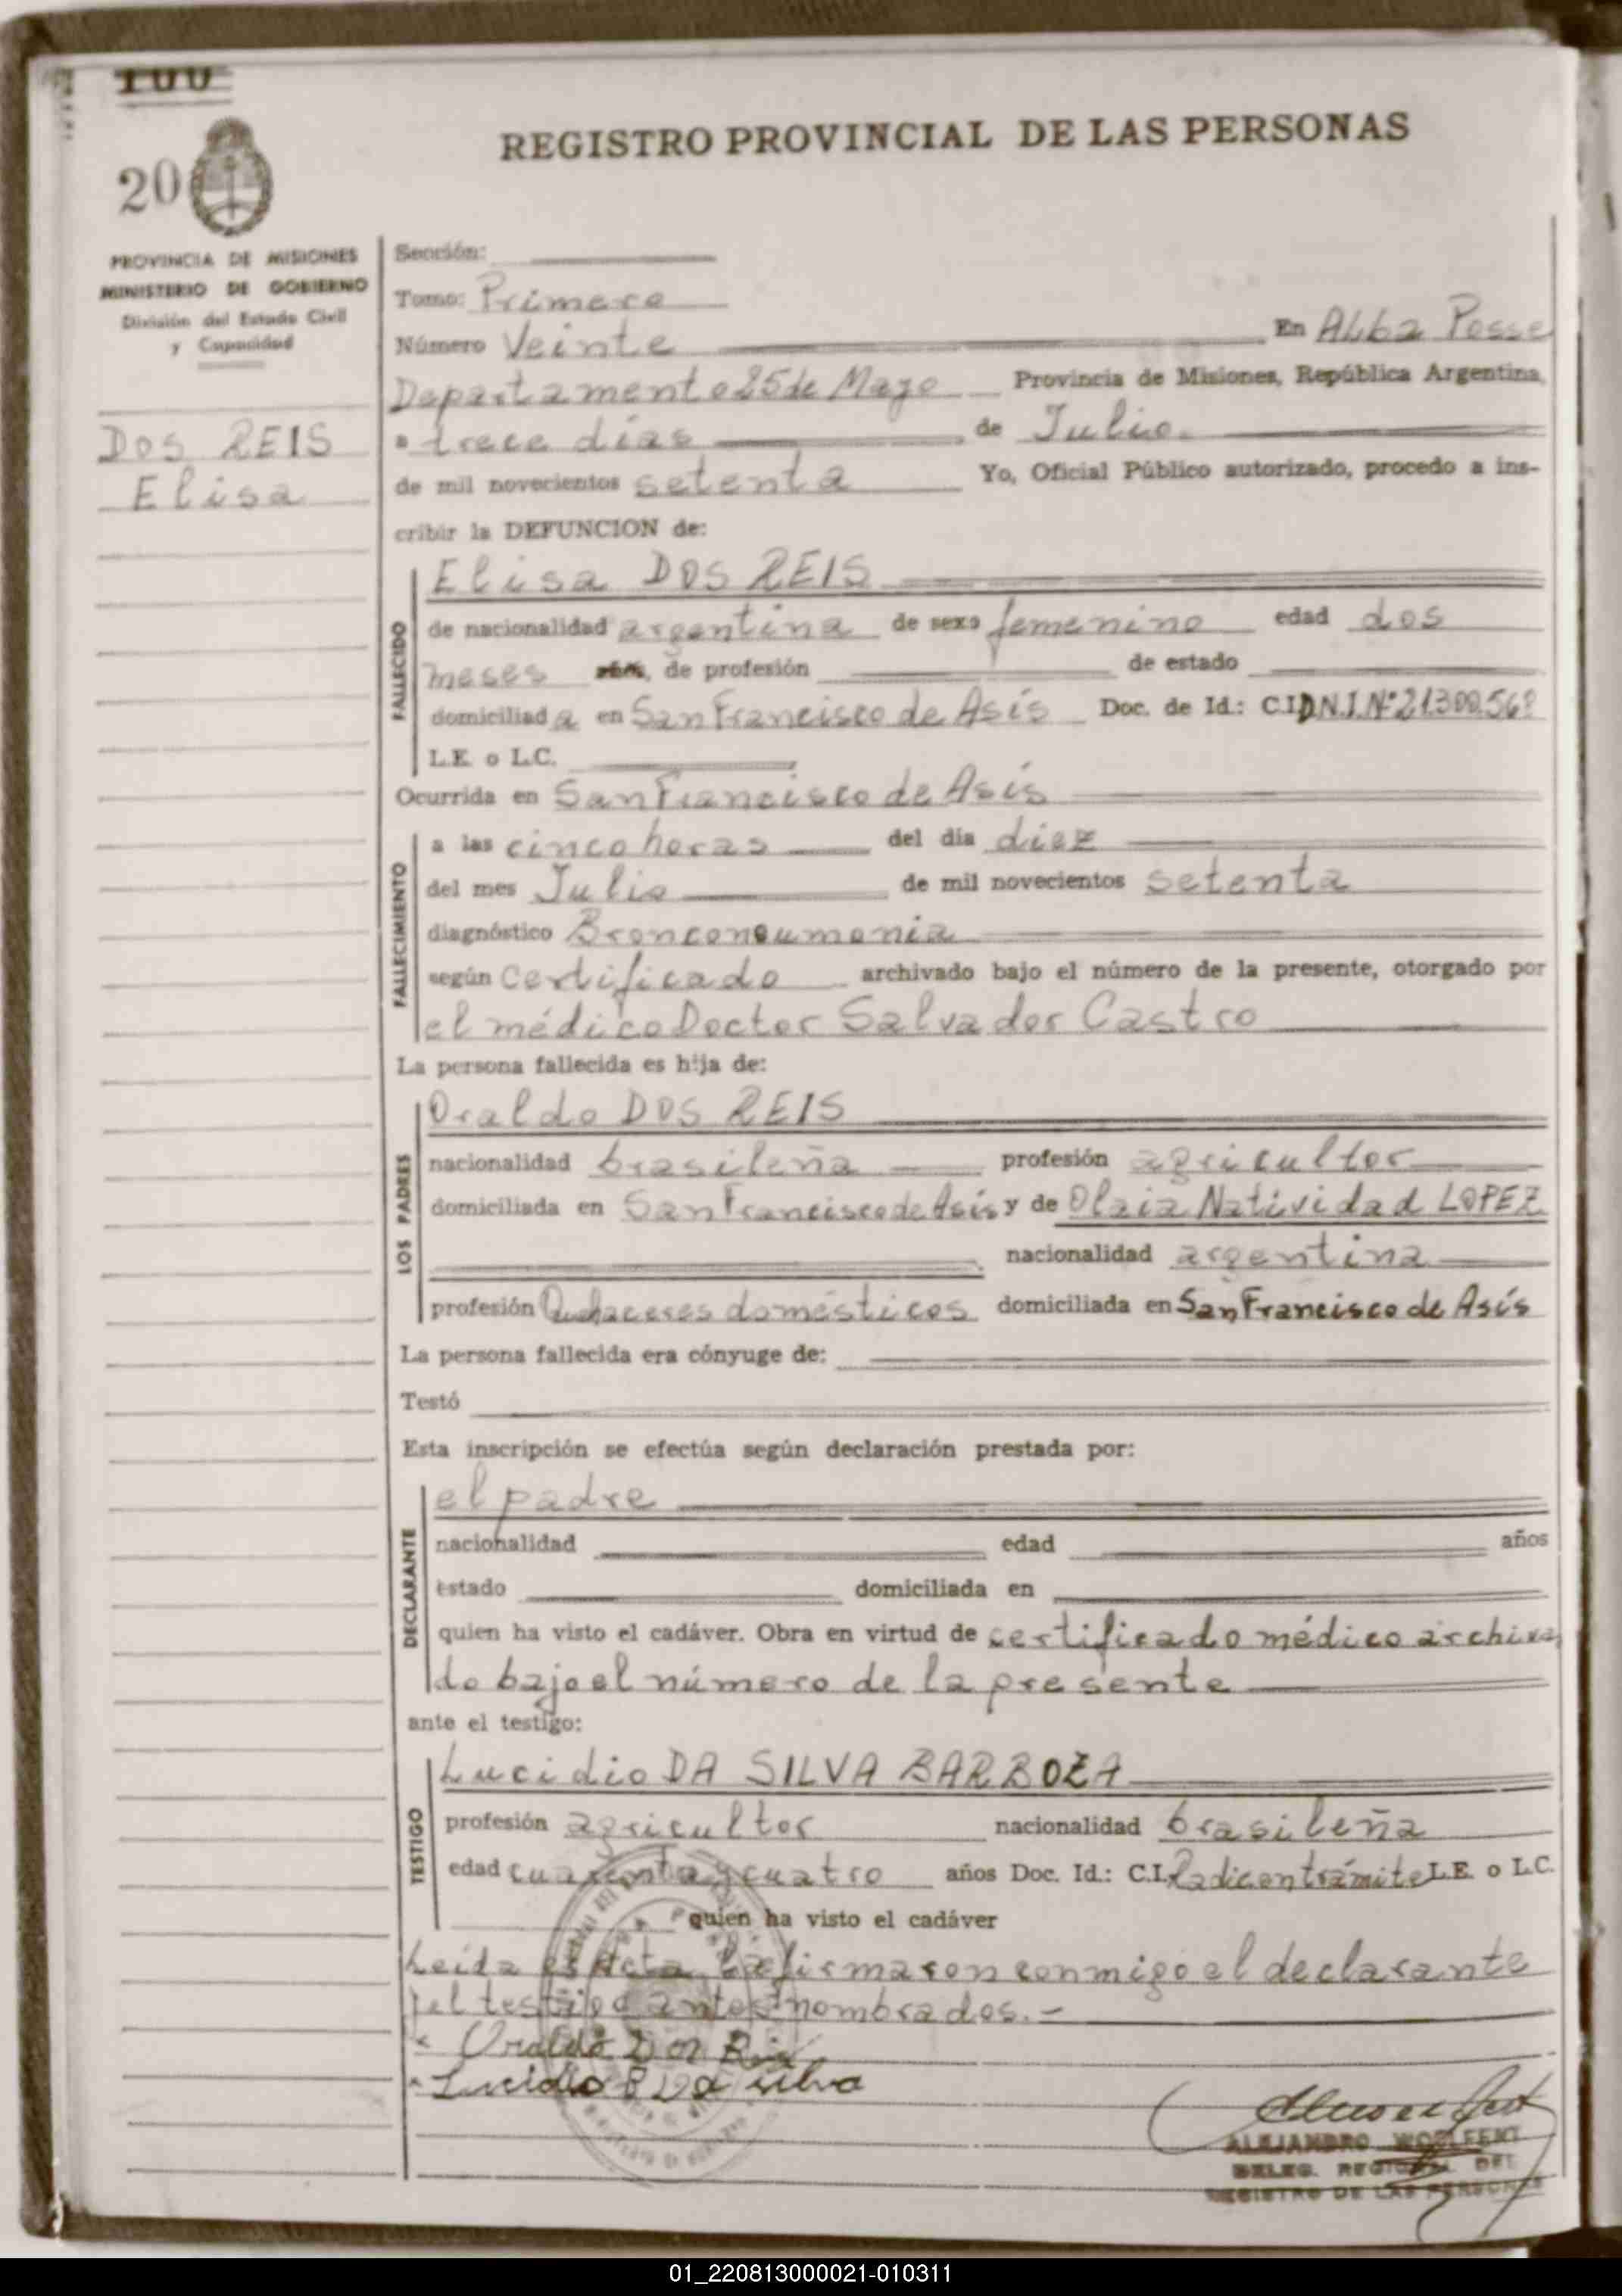 100
20
REGISTRO PROVINCIAL DE LAS PERSONAS
PROVINCIA DE MISIONES
MINISTERIO DE GOBIERNO
División del Estado Civil
y Capacidad
DOS REIS
Elisa
Sección:
Tomo: Primero
Número Veinte En Alba Posse
Departamento 25 de Mayo Provincia de Misiones, República Argentina,
a trece días de Julio.
de mil novecientos setenta Yo, Oficial Público autorizado, procedo a ins-
cribir la DEFUNCION de:
FALLECIDO
Elisa DOS REIS
de nacionalidad argentina de sexo femenino edad dos
meses años, de profesión de estado
domiciliada en San Francisco de Asís Doc. de Id.: C.I. D.N.I. Nº 21.300.568
L.E. o L.C.
Ocurrida en San Francisco de Asís
FALLECIMIENTO
a las cinco horas del día diez
del mes Julio de mil novecientos setenta
diagnóstico Bronconeumonia
según Certificado archivado bajo el número de la presente, otorgado por
el médico Doctor Salvador Castro
La persona fallecida es hija de:
LOS PADRES
Oraldo DOS REIS
nacionalidad brasileña profesión agricultor
domiciliada en San Francisco de Asís y de Olaia Natividad LOPEZ
nacionalidad argentina
profesión Quehaceres domésticos domiciliada en San Francisco de Asís
La persona fallecida era cónyuge de:
Testó
Esta inscripción se efectúa según declaración prestada por:
DECLARANTE
el padre
nacionalidad edad años
estado domiciliada en
quien ha visto el cadáver. Obra en virtud de certificado médico archiva
do bajo el número de la presente
ante el testigo:
TESTIGO
Lucidio DA SILVA BARBOZA
profesión agricultor nacionalidad brasileña
edad cuarenta y cuatro años Doc. Id.: C.I. Radic en trámite L.E. o L.C.
quien ha visto el cadáver
Leída el Acta, la firmaron conmigo el declarante
y el testigo antes nombrados.-
Oraldo Dos Reis
Lucidio B Da silva
ALEJANDRO
DELEG. REGIONAL DEL
REGISTRO DE LAS PERSONAS
01_220813000021-010311